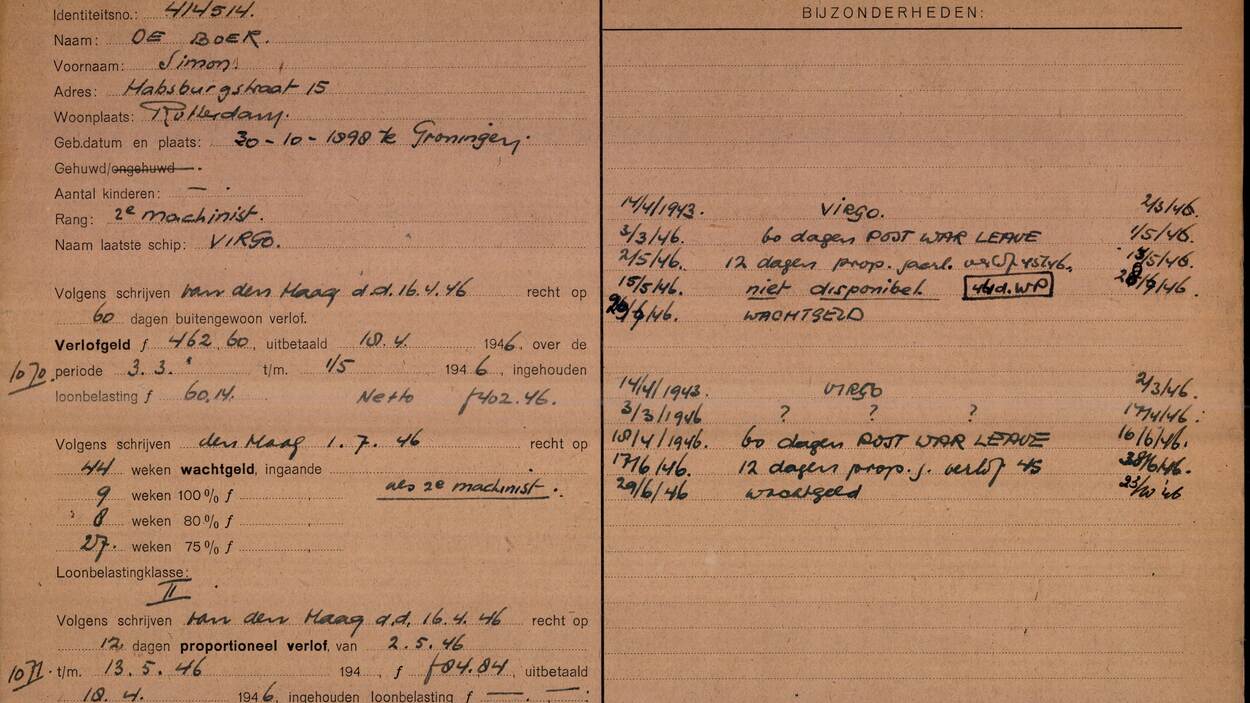 Identiteitsno.: 414514.
Naam: DE BOER.
Voornaam: Simon.
Adres: Habsburgstraat 15
Woonplaats: Rotterdam.
Geb.datum en plaats: 30-10-1898 te Groningen.
Gehuwd/ongehuwd
Aantal kinderen: —
Rang: 2e machinist.
Naam laatste schip: VIRGO.
Volgens schrijven van den Haag d.d. 16.4.46 recht op
60 dagen buitengewoon verlof.
Verlofgeld f 462,60, uitbetaald 18.4. 1946, over de
1070. periode 3.3. t/m. 1/5 1946, ingehouden
loonbelasting f 60,14. Netto f402.46.
Volgens schrijven den Haag 1.7.46 recht op
44 weken wachtgeld, ingaande
9 weken 100% f als 2e machinist.
8 weken 80% f
27. weken 75% f
Loonbelastingklasse:
II
Volgens schrijven van den Haag d.d. 16.4.46 recht op
12 dagen proportioneel verlof, van 2.5.46
1071. t/m. 13.5.46 194 , f f84.84, uitbetaald
18.4. 1946, ingehouden loonbelasting f —.—
BIJZONDERHEDEN:
14/4/1943. VIRGO. 2/3/46.
3/3/46. 60 dagen POST WAR LEAVE 1/5/46.
2/5/46. 12 dagen prop. jaarl. verlof 45/46. /5/46.
15/5/46. niet disponibel. 46d.WP /46.
/46. WACHTGELD
14/4/1943. VIRGO 2/3/46.
3/3/1946 ? ? ? 17/4/46.
18/4/1946. 60 dagen POST WAR LEAVE 16/6/46.
17/6/46. 12 dagen prop. j. verlof 45 28/6/46.
29/6/46 wachtgeld 23/ '46